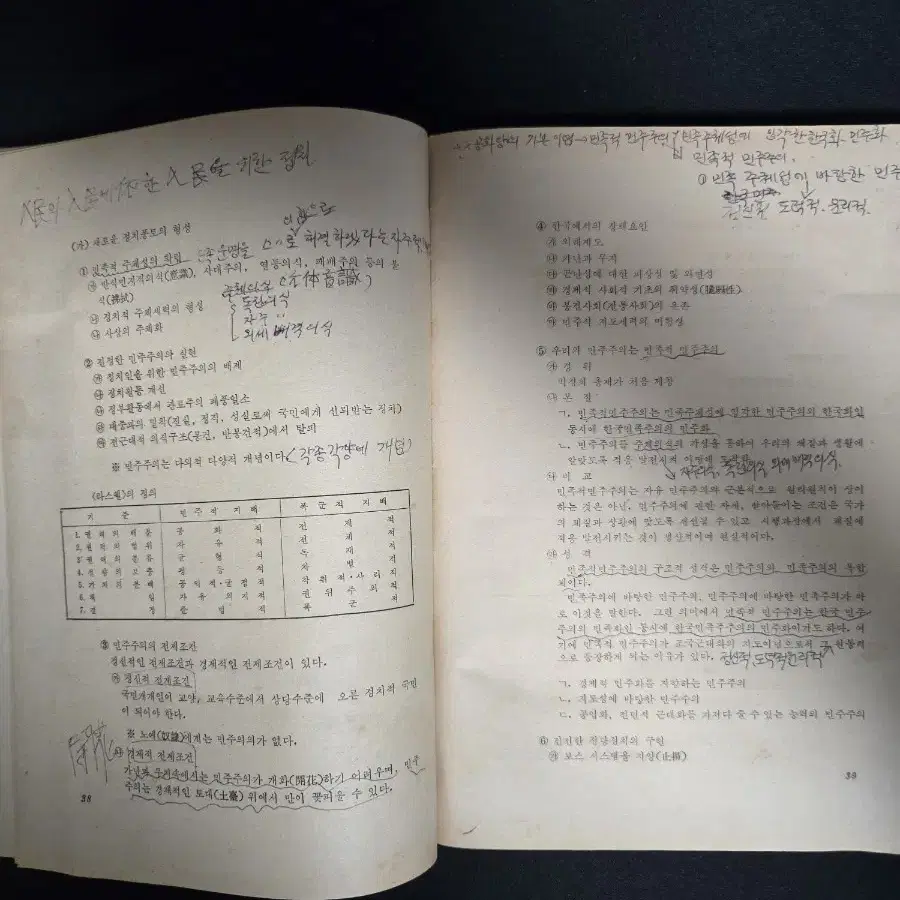 人民의 人民에 依한 人民을 위한 정치
(가) 새로운 정치풍토의 형성
① 민족적 주체성의 확립
㉮ 반식민지적의식(意識), 사대주의, 열등의식, 패배주의 등의 불식(拂拭)
㉯ 정치적 주체세력의 형성
㉰ 사상의 주체화
민족 운명을 스스로 해결하겠다는 자주적
주체의식
독립의식
자주 〃
외세 배격의식
② 진정한 민주주의의 실현
㉮ 정치인을 위한 민주주의의 배제
㉯ 정치활동 개선
㉰ 정부활동에서 관료주의 폐풍일소
㉱ 대중과의 밀착(진실, 정직, 성실로써 국민에게 신뢰받는 정치)
㉲ 전근대적 의식구조(봉건, 반봉건적)에서 탈피
※ 민주주의는 다의적 다양적 개념이다 (각종각양의 개념)
(라스웰)의 정의
기 준 민 주 적 지 배 폭 군 적 지 배
1. 공 화 적 전 제 적
2. 자 유 적 전 체 적
3. 균 형 적 독 재 적
4. 평 등 적 차 별 적
5. 가 치 의 분 배 공 익 적 · 균 점 적 착 취 적 · 사 리 적
6. 자 유 의 지 적 권 위 주 의 적
7. 폭 군 적
③ 민주주의의 전제조건
정신적인 전제조건과 경제적인 전제조건이 있다.
㉮ 정신적 전제조건
국민개개인이 교양, 교육수준에서 상당수준에 오른 정치적 국민
이 되어야 한다.
※ 노예(奴隷)에게는 민주의의가 없다.
開花
㉯ 경제적 전제조건
가난과 무지속에서는 민주주의가 개화(開花)하기 어려우며, 민주
주의는 경제적인 토대(土臺) 위에서 만이 꽃피울 수 있다.
38
공화당의 기본 이념→민족적 민주주의
민족주체성에 입각한 한국화 민주화
민족적 민주주의.
① 민족 주체성에 바탕한 민주
도덕적. 윤리적.
④ 한국에서의 장해요인
㉮ 외래제도
㉯ 가난과 무지
㉰ 근난성에 대한 피상성 및 과열성
㉱ 경제적 사회적 기초의 취약성(脆弱性)
㉲ 봉건사회(전통사회)의 온존
㉳ 민주적 지도세력의 미형성
⑤ 우리의 민주주의는 민족적 민주주의
㉮ 경 위
박정희 총재가 처음 제창
㉯ 본 질
ㄱ. 민족적민주주의는 민족주체성에 입각한 민주주의의 한국화인
동시에 한국민족주의의 민주화
ㄴ. 민주주의를 주체의식의 각성을 통하여 우리의 체질과 생활에
알맞도록 적응 발전시킨
자주의식, 독립의식 외세배격의식.
㉰ 비 교
민족적민주주의는 자유 민주주의와 근본적으로 원리원칙이 상이
하는 것은 아닌, 민주주의에 관한 자세, 받아들이는 조건은 국가
의 체질과 상황에 맞도록 개선될 수 있고 시행과정에서 체질에
적응 발전시키는 것이 정상적이며 현실적이다.
㉱ 성 격
민족적민주주의의 구조적 성격은 민주주의와 민족주의의 복합
체이다.
민족주의에 바탕한 민주주의, 민주주의에 바탕한 민족주의가 바
로 이것을 말한다. 그런 의미에서 민족적 민주주의는 한국 민주
주의의 민족화인 동시에 한국민족주주의의 민주화이기도 하다. 여
기에 민족적 민주주의가 조국근대화의 지도이념으로서 그 원동력
으로 등장하게 되는 이유가 있다. 정신적, 도덕적 윤리적
ㄱ. 경제적 민주화를 지향하는 민주주의
ㄴ. 지도성에 바탕한 민주주의
ㄷ. 공업화, 전민적 근대화를 가져다 줄 수 있는 능력의 민주주의
⑥ 진신한 정당정치의 구현
㉮ 보스 시스템을 지양(止揚)
39